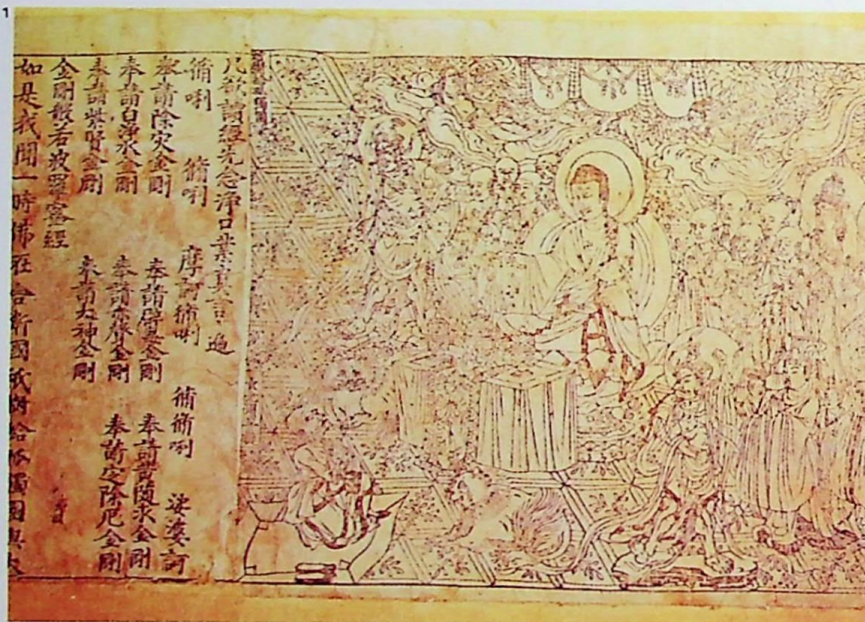 1
凡欲讀經先念淨口業真言一遍
脩唎 脩唎 摩訶脩唎 脩脩唎 娑婆訶
奉請除災金剛 奉請辟毒金剛 奉請黃隨求金剛
奉請白淨水金剛 奉請赤聲金剛 奉請定除厄金剛
奉請紫賢金剛 奉請大神金剛
金剛般若波羅蜜經
如是我聞一時佛在舍衛國祇樹給孤獨園與大